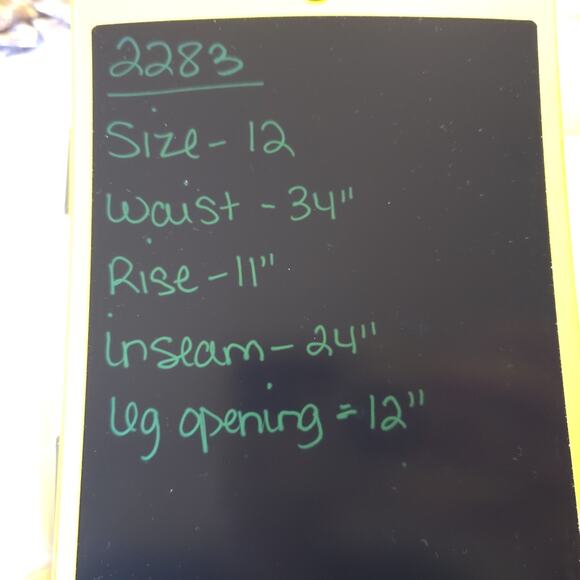 2283
Size - 12
Waist - 34"
Rise - 11"
inseam - 24"
leg opening = 12"